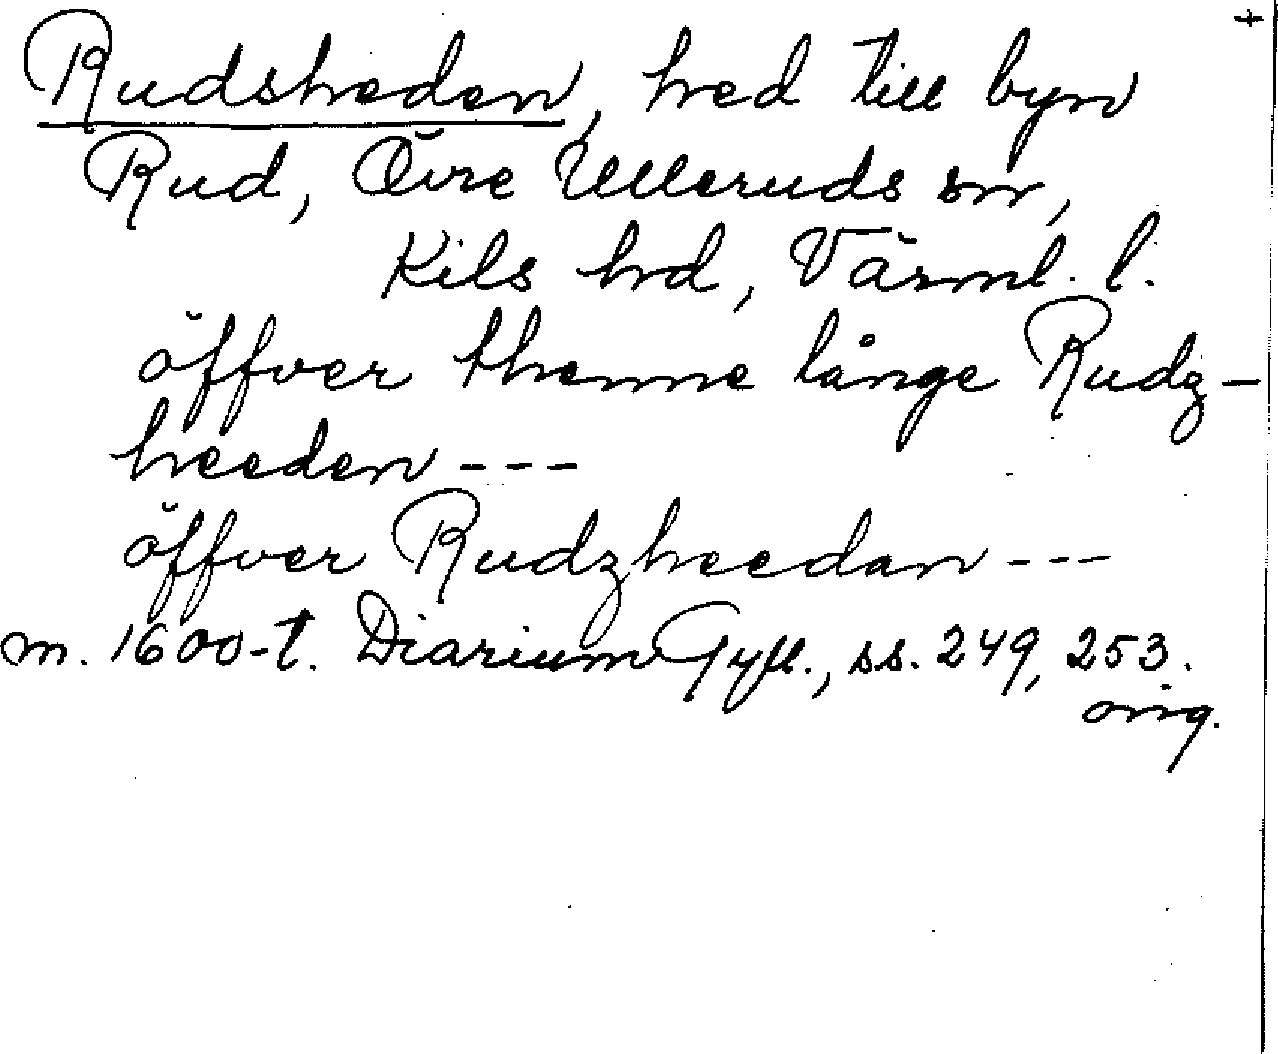 +
Rudsheden, hed till byn
Rud, Övre Ulleruds sn,
Kils hd, Värml. l.
öffver thenne långe Rudz-
heeden ---
öffver Rudzheedan ---
m. 1600-t. Diarium Gyll., ss. 249, 253.
orig.